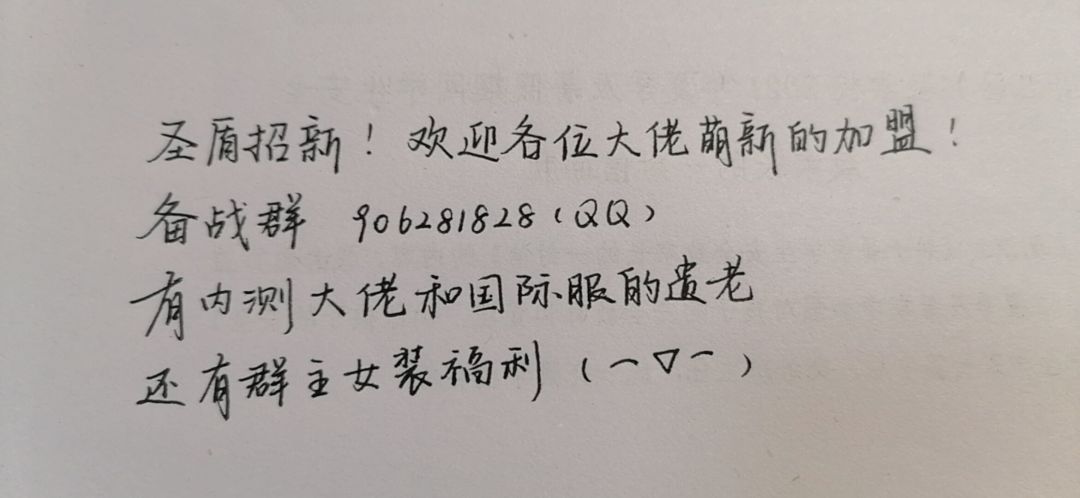 圣盾招新！欢迎各位大佬萌新的加盟！
备战群 906281828（QQ）
有内测大佬和国际服的遗老
还有群主女装福利（一▽一）